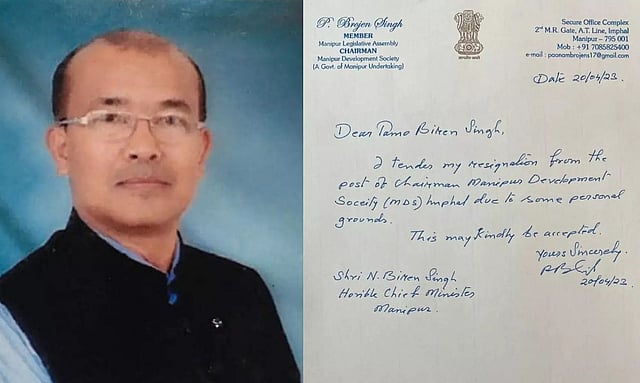 P. Brojen Singh
MEMBER
Manipur Legislative Assembly
CHAIRMAN
Manipur Development Society
(A Govt. of Manipur Undertaking)
Secure Office Complex
2nd M.R. Gate, A.T. Line, Imphal
Manipur – 795 001
Mob : +91 7085825400
e-mail : poonambrojens17@gmail.com
Date 20/04/23.
Dear Tamo Biren Singh,
I tender my resignation from the
post of Chairman Manipur Development
Soceity (MDS) Imphal due to some personal
grounds.
This may kindly be accepted.
Yours Sincerely.
20/04/23.
Shri N. Biren Singh
Hon'ble Chief Minister
Manipur.